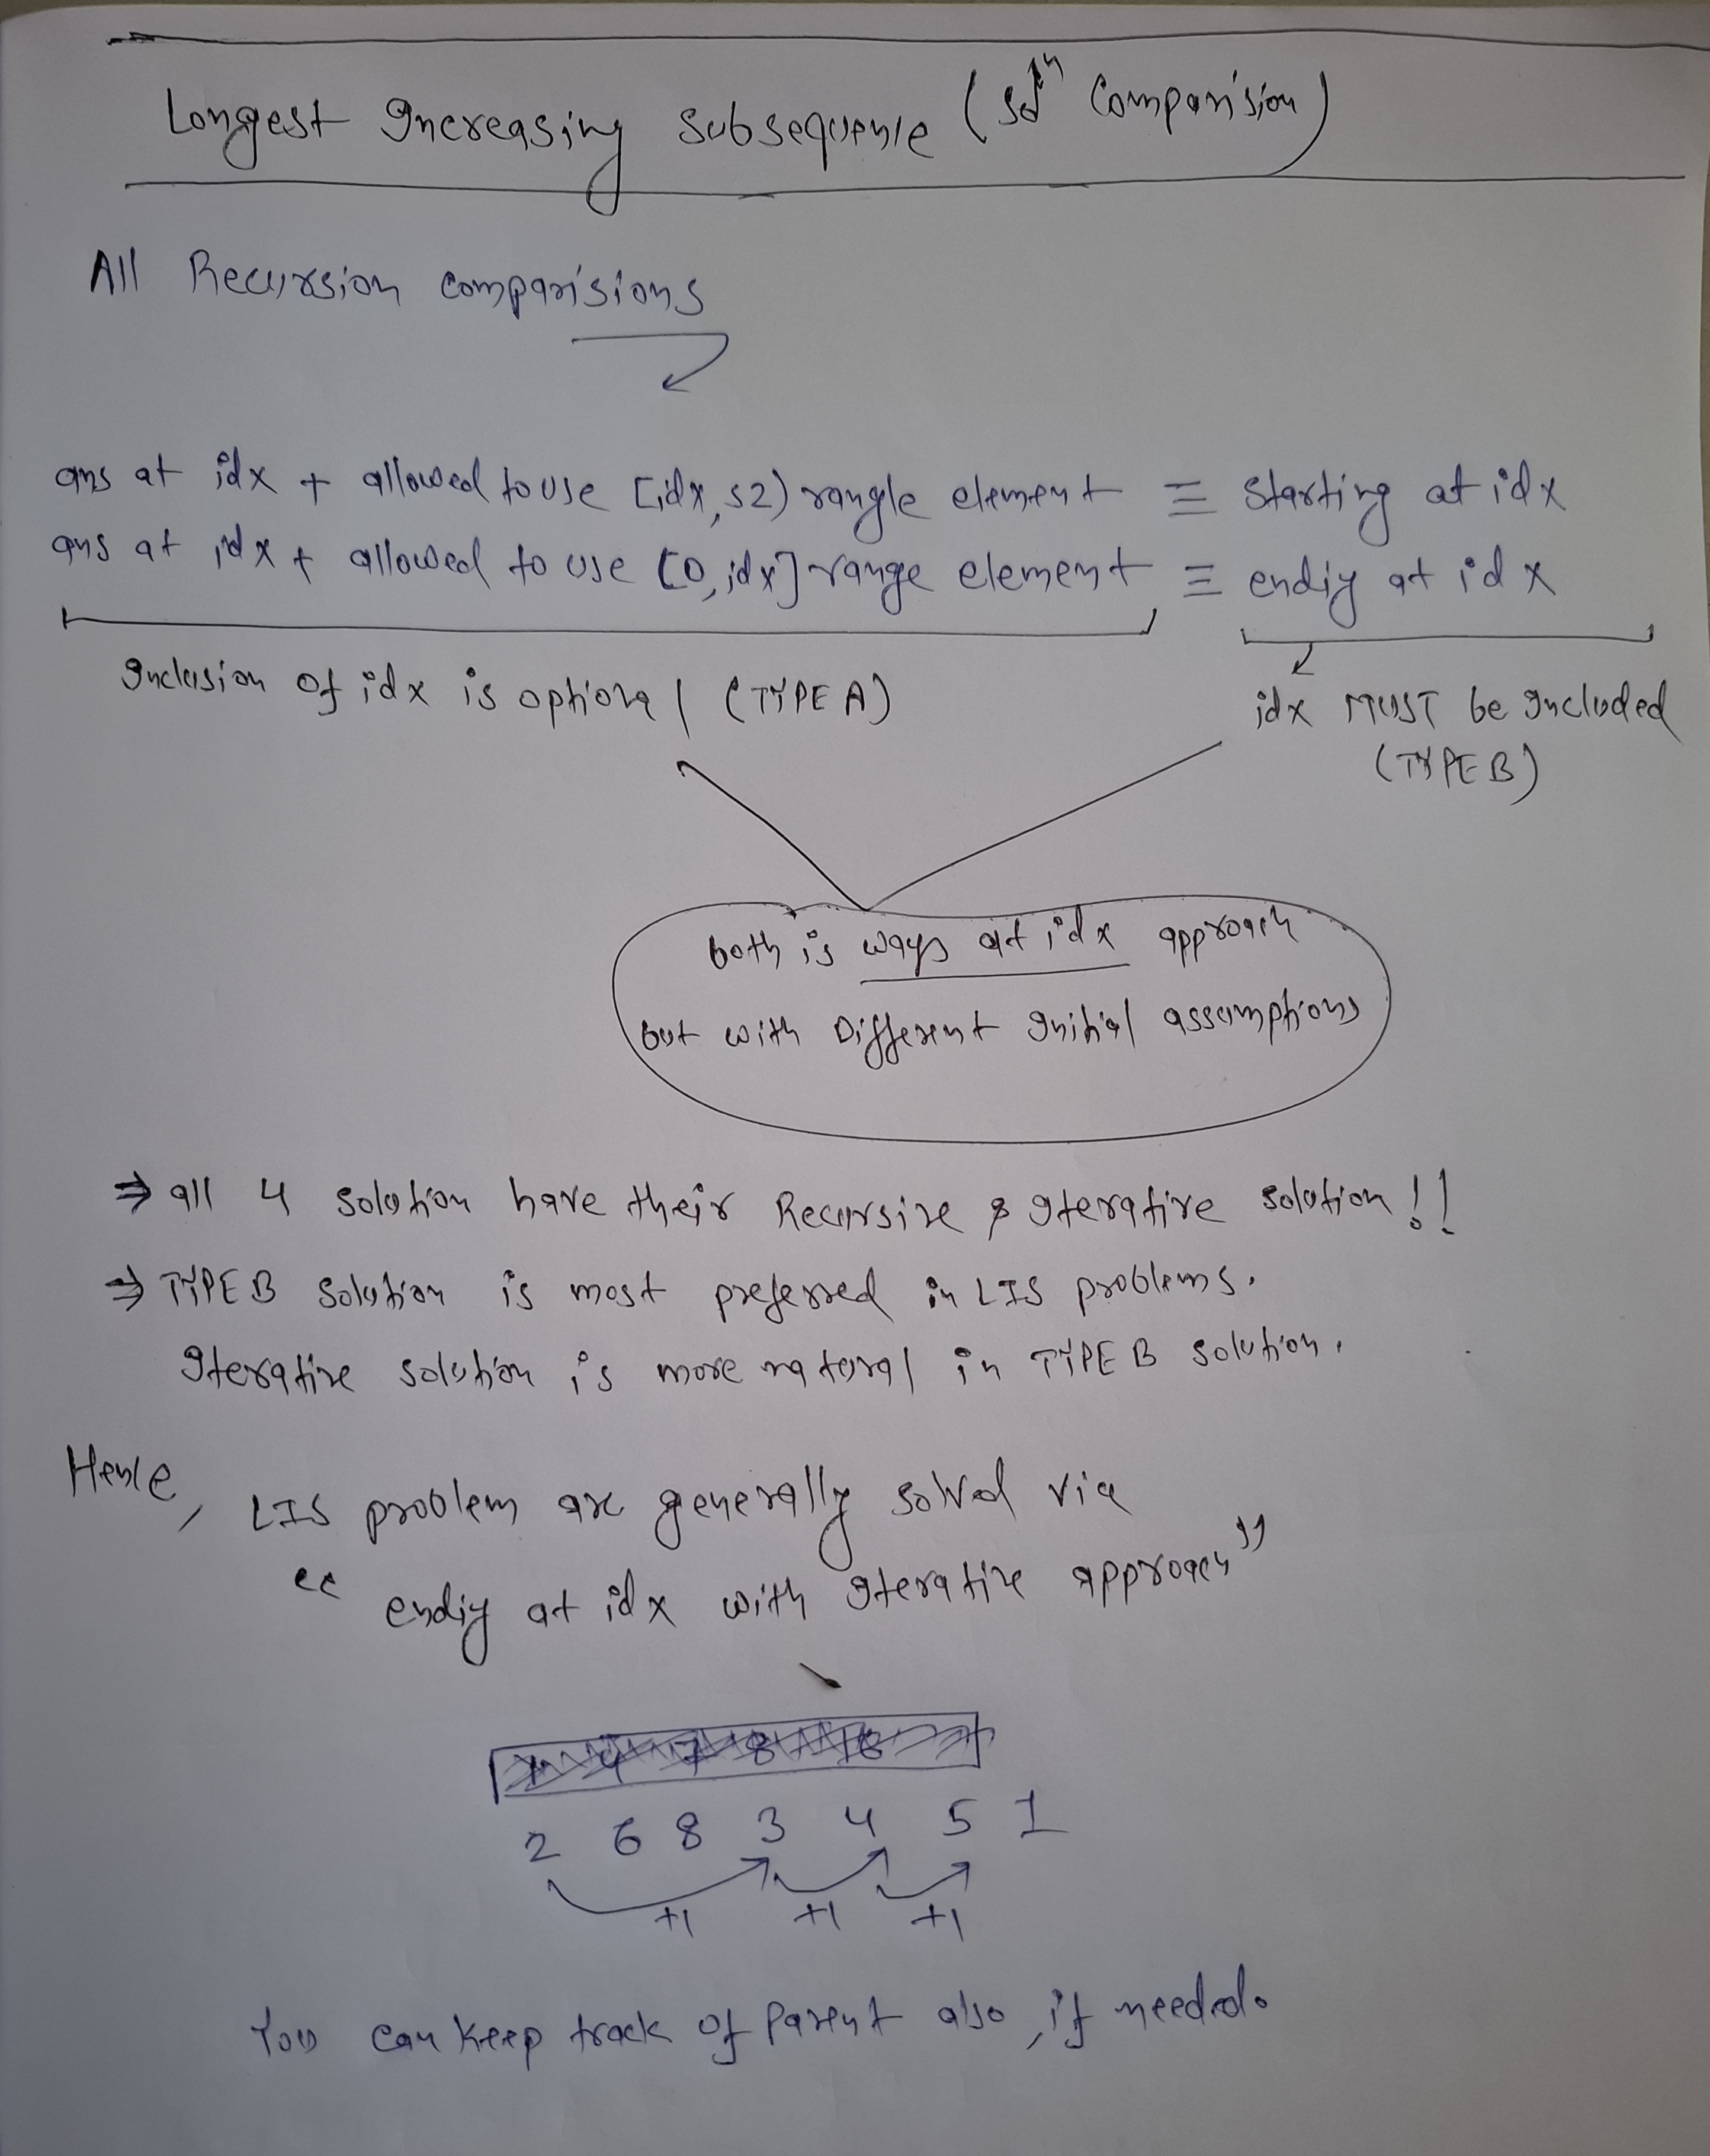 Longest Increasing Subsequence (solⁿ Comparision)
All Recursion comparisions
ans at idx + allowed to use [idx, sz) rangle element ≡ starting at idx
ans at idx + allowed to use [0, idx] range element ≡ endig at idx
Inclusion of idx is optional (TYPE A)
idx MUST be included
(TYPE B)
both is ways at idx approach
but with Different Initial assumptions
⇒ all 4 solution have their Recursive & Iterative solution !!
⇒ TYPE B solution is most preferred in LIS problems.
Iterative solution is more natural in TYPE B solution.
Hence,
LIS problem are generally solved via
“ endig at idx with Iterative approach”
2 6 8 3 4 5 1
+1 +1 +1
You can keep track of Parent also, if needed.